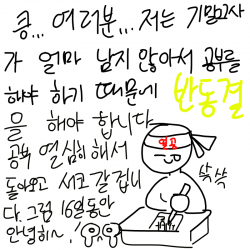 킁... 여러분... 저는 기말고사
가 얼마 남지 않아서 공부를
해야 하기 때문에 반동결
을 해야 합니다
공부 열심히해서
돌아오고 서코 갈겁니
다. 그럼 16일동안
안녕히~!
열공
쓱쓱